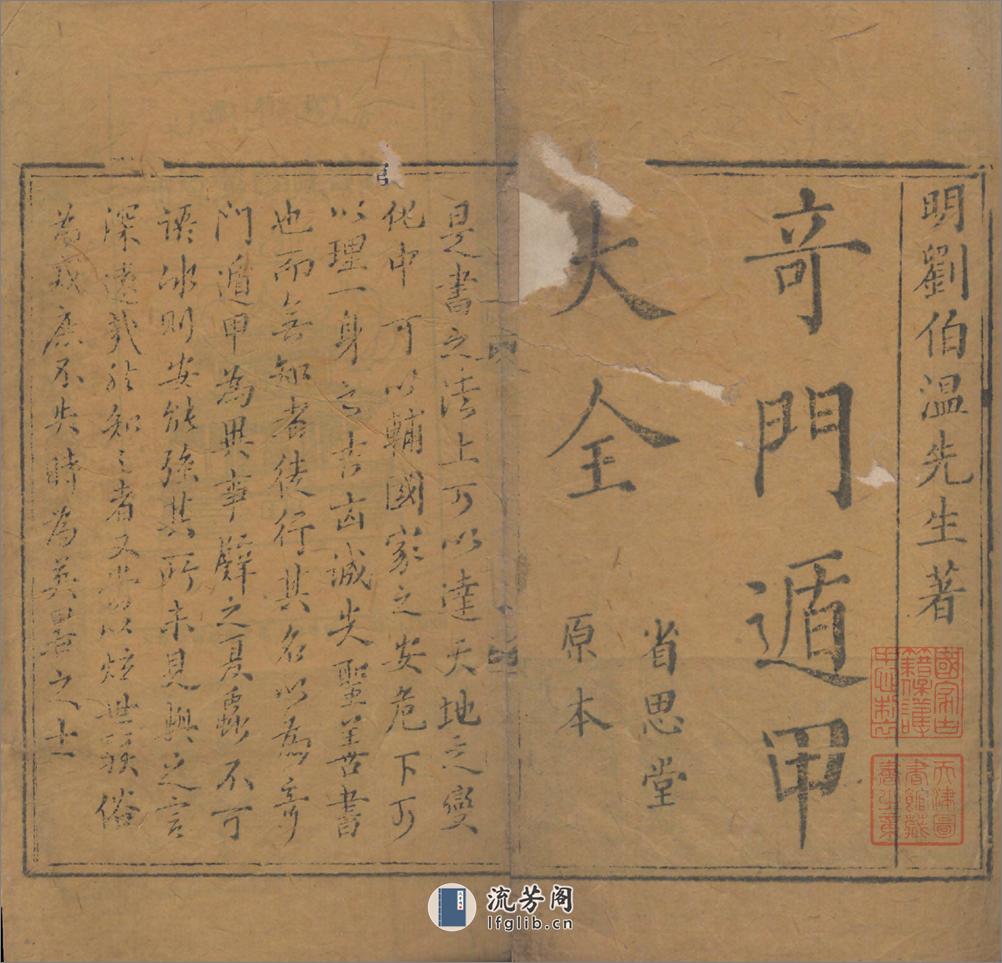 明劉伯温先生著
竒門遁甲
大全
省思堂
原本
國家古
籍保護
天津圖
書館藏
是書之法上可以達天地之變
化中可以輔國家之安危下可
以理一身之吉凶誠先聖善書
也而無知者徒行其名以為竒
門遁甲為異事譬之夏蟲不可
語冰則安能強其所未見與之言
深遠哉於知之者又以炫世駭俗
為戒庶不失時為英君之士
流芳阁
lfglib.cn